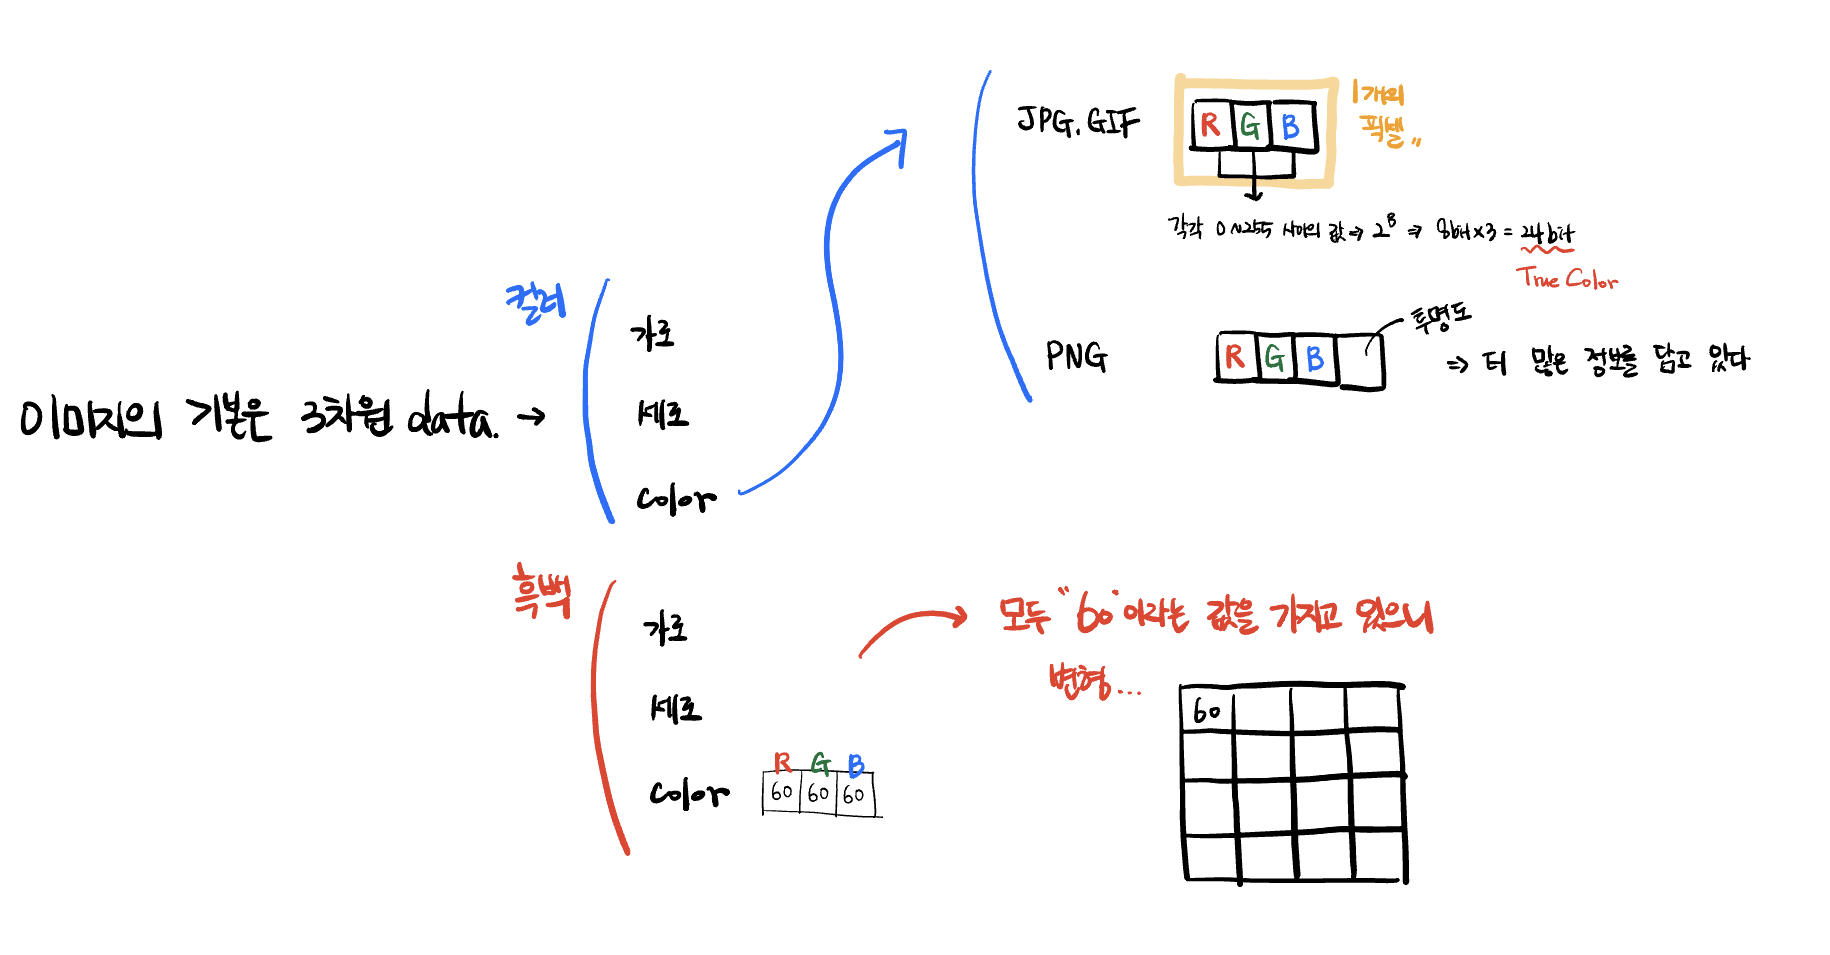 이미지의 기본은 3차원 data. →
컬러
가로
세로
Color
JPG. GIF
R G B
1개의
픽셀 〃
각각 0~255 사이의 값 ⇒ 2⁸ ⇒ 8bit × 3 = 24bit
True Color
PNG
R G B
투명도
⇒ 더 많은 정보를 담고 있다
흑백
가로
세로
Color
R G B
60 60 60
모두 "60"이라는 값을 가지고 있으니
변형...
60